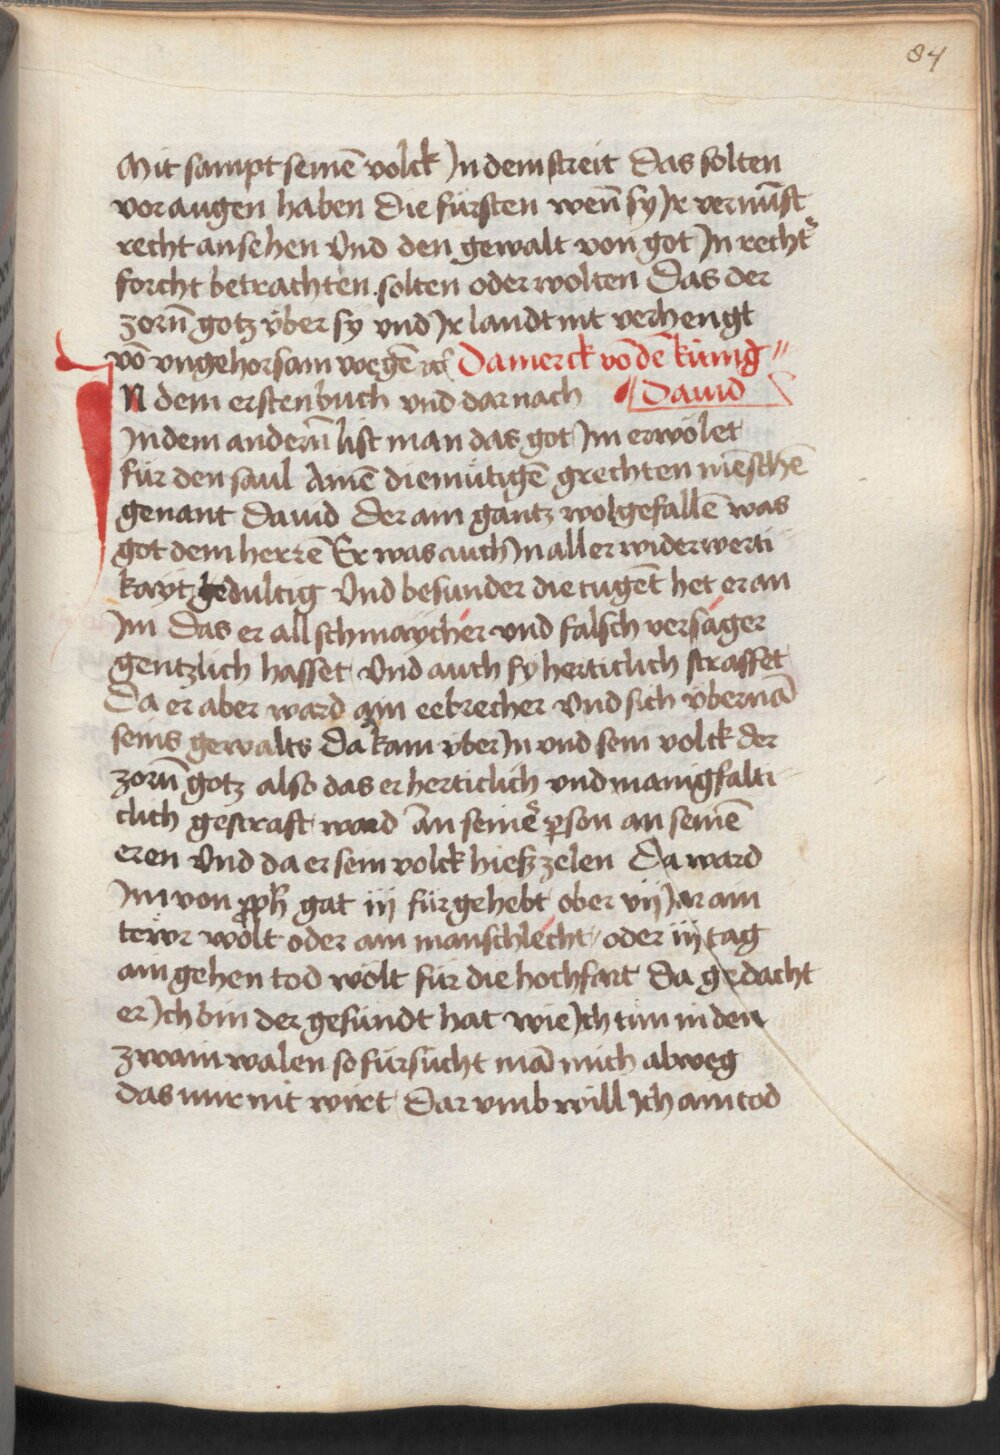 84
Mit sampt seinē volck Jn dem streit Das solten
vor augen haben Die fürsten wen̄ sy Jr vernu̅fft
recht ansehen Vnd den gewalt von got Jn recht͛
forcht betrachten solten oder wolten Das der
zorn̄ gotz v̈ber sy vnd Jr landt nit verhengt
vō vngehorsam wegē ꝛc̄ Da merck vō dē künig
JN dem ersten buch vnd dar nach Dauid
Jn dem andern̄ list man das got Jm erwölet
für den saul Ainē diemütigē grechten mēschē
genant Dauid Der ain gantz wolgefallē was
got dem herrē Er was auch Jn aller widerwerti
kayt gedultig Vnd besunder die tugēt het er an
Jm Das er all schmaycher vnd falsch versager
gentzlich hasset Vnd auch sy herticlich straffet
Da er aber ward ain eebrecher Vnd sich v̈bernā
seins gewalts Da kam v̈ber Jn vnd sein volck der
zorn̄ gotz also das er herticlich vnd manigfalti
clich gestraft ward An seinē͛ ꝑson an seinē
eren Vnd da er sein volck hiesz zelen Da ward
Jm von ꝓph gat iij für gehebt ober vij Jar ain
tewr wolt oder ain manschlecht oder iij tag
ain gehen tod wölt für die hochfart Da gedacht
er Jch bin der gesündt hat wie Jch tün in den
zwain walen so fürsücht mā mich abweg
das mir nit wirt Dar vmb will Jch ain tod